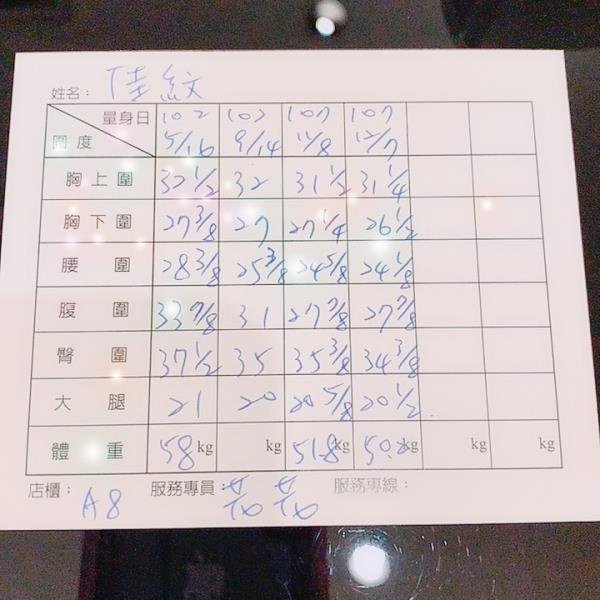 姓名: 佳紋
量身日 102 102 107 107
圍度 5/16 9/14 11/8 12/7
胸上圍 32 1/2 32 31 1/2 31 1/4
胸下圍 27 3/8 27 27 1/4 26 1/2
腰圍 28 3/8 25 3/8 24 5/8 24 1/8
腹圍 33 7/8 31 27 7/8 27 7/8
臀圍 37 1/2 35 35 3/8 34 3/8
大腿 21 20 20 5/8 20 1/2
體重 58kg kg 51.8kg 50.2kg kg kg
店櫃: A8 服務專員: 芳芳 服務專線: